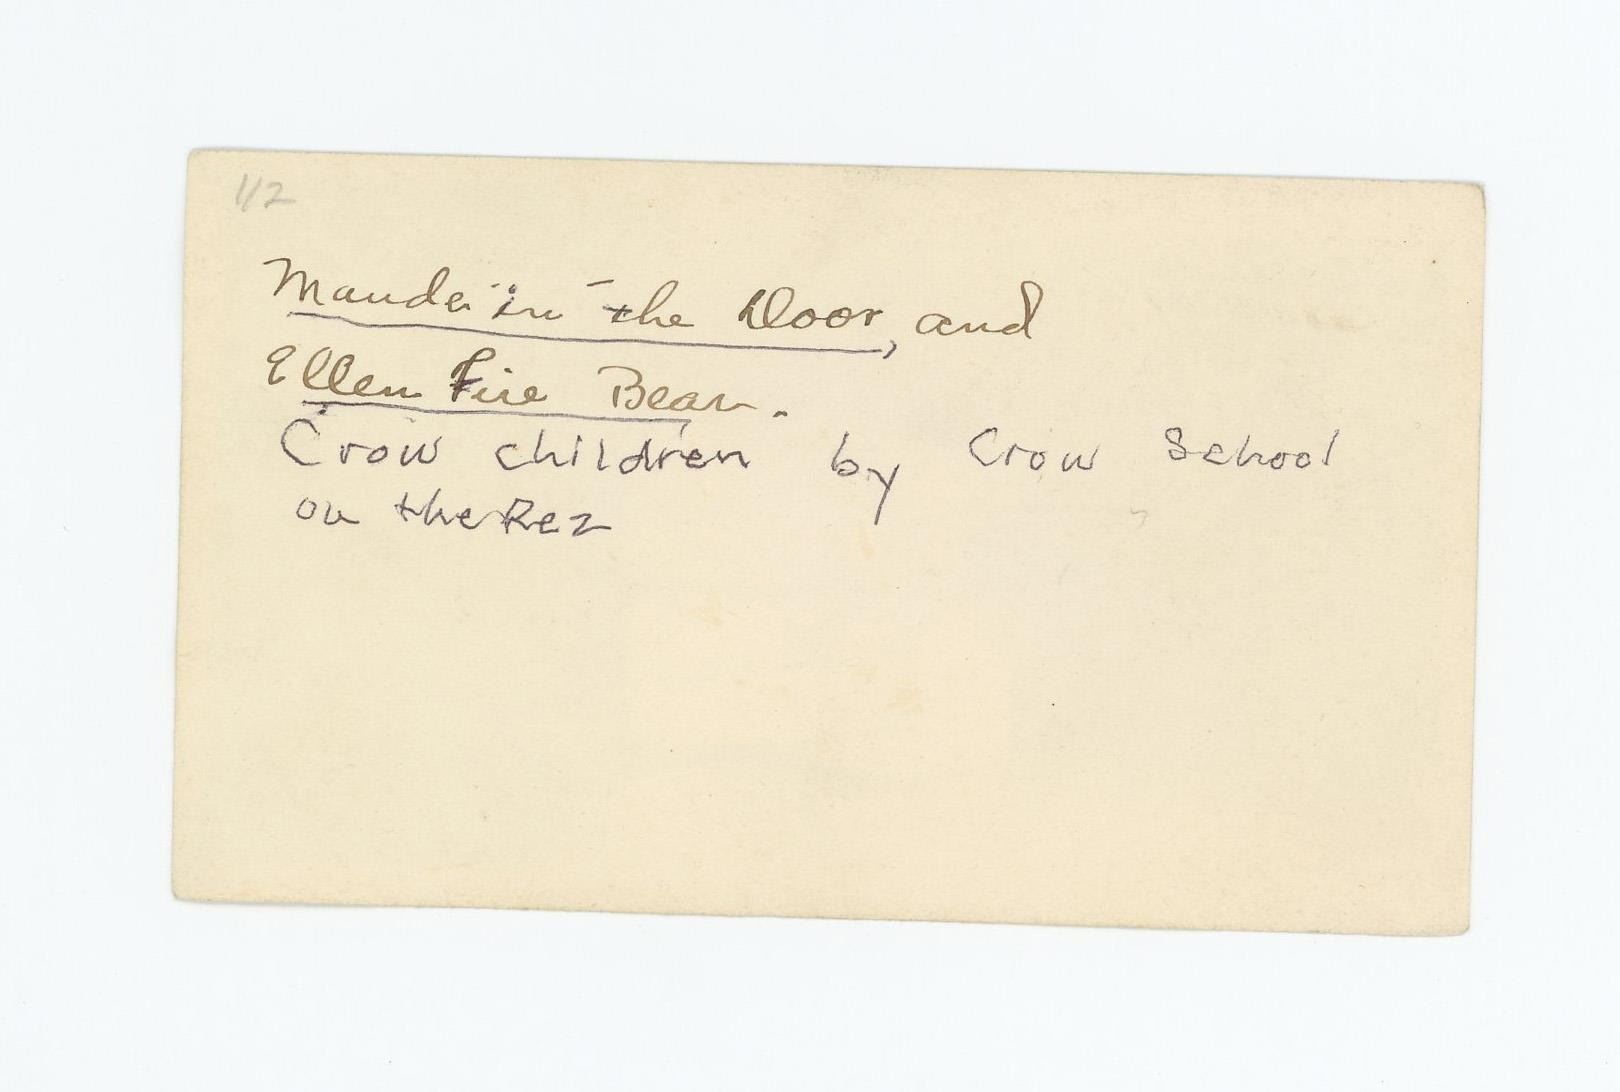 112
Maude in the Door, and
Ellen Fire Bear.
Crow children by Crow School
on the Rez